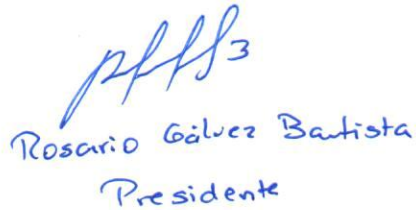 Rosario Gálvez Bautista
Presidente